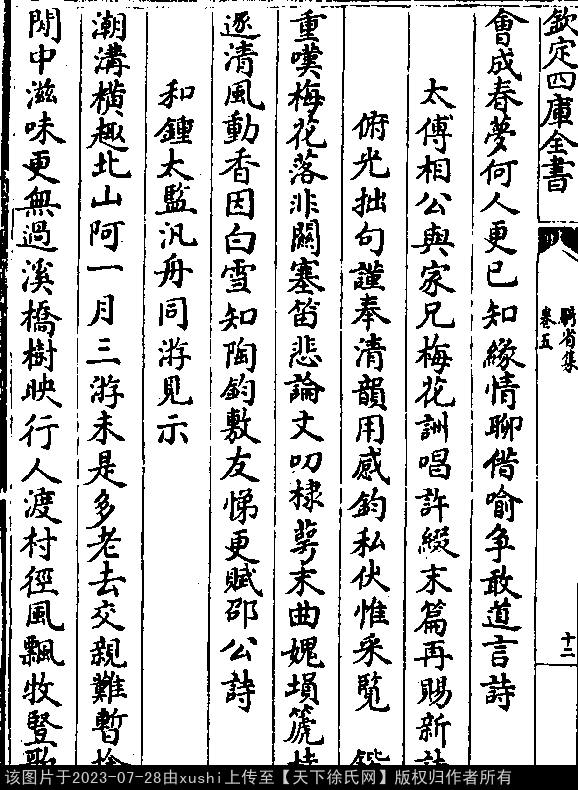 欽定四庫全書
騎省集
卷五
十二
會成春夢何人更已知緣情聊借喻爭敢道言詩
太傅相公與家兄梅花詶唱許綴末篇再賜新詩
俯光拙句謹奉清韻用感鈞私伏惟采覧 鍇
重嘆梅花落非關塞笛悲論文叨棣萼末曲媿塤箎
逐清風動香因白雪知陶鈞敷友悌更賦邵公詩
和鍾太監汎舟同游見示
潮溝横趣北山阿一月三游未是多老去交親難暫捨
閒中滋味更無過溪橋樹映行人渡村徑風飄牧豎歌
该图片于2023-07-28由xushi上传至【天下徐氏网】版权归作者所有